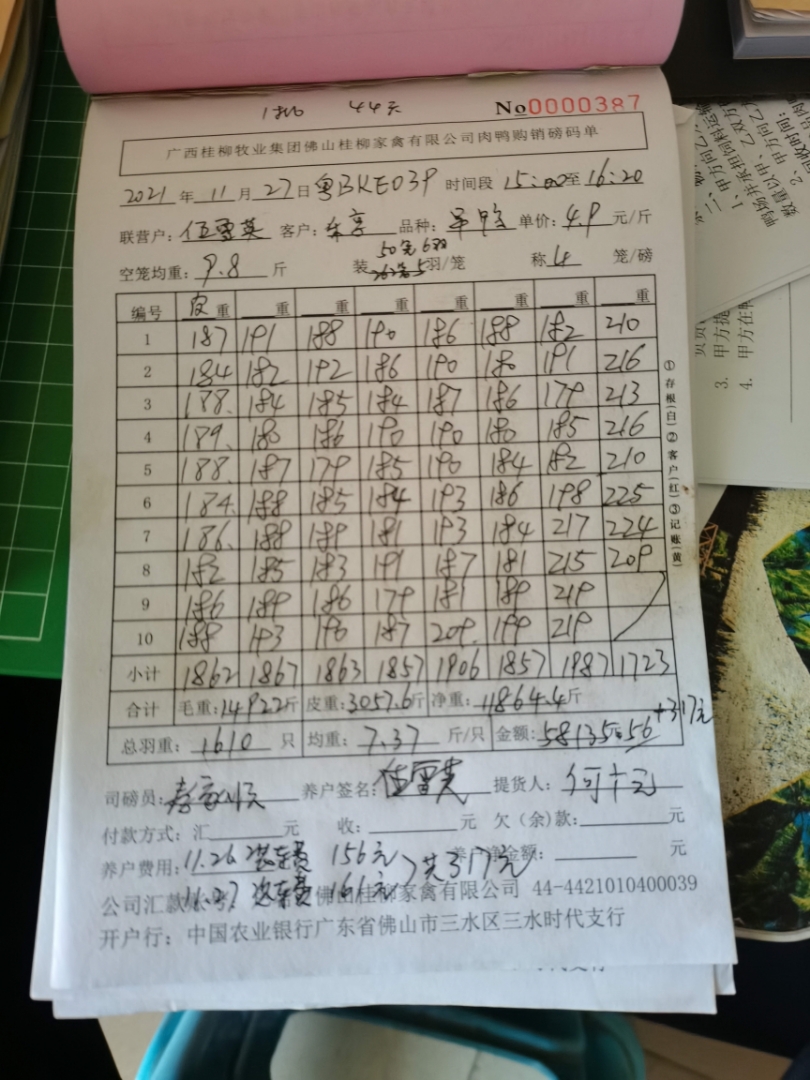 44天 No0000387
广西桂柳牧业集团佛山桂柳家禽有限公司肉鸭购销磅码单
2021年11月27日 粤BKE039 时间段 15:00至16:20
联营户:伍雪英 客户: 品种: 单价:4.9元/斤
50笼6羽
空笼均重:9.8斤 装262笼5羽/笼 称4笼/磅
编号 皮重 重 重 重 重 重 重 重
1 187 191 188 190 186 188 182 210
2 184 182 192 186 190 180 191 216
3 188 184 185 184 187 186 179 213
4 189 180 186 190 190 180 185 216
5 188 187 179 185 190 184 182 210
6 184 188 185 184 193 186 198 225
7 186 188 189 181 193 184 217 224
8 182 185 183 191 187 181 215 209
9 186 189 186 179 181 189 219
10 188 193 190 187 209 199 219
小计 1862 1867 1863 1857 1906 1857 1987 1723
合计 毛重:14922斤 皮重:3057.6斤 净重:11864.4斤
+317元
总羽重:1610只 均重:7.37斤/只 金额:58135.56
司磅员: 养户签名:伍雪英 提货人:
付款方式:汇 元 收: 元 欠(余)款: 元
养户费用:11.26 装车费 156元 共317元 金额: 元
公司汇款 11.27 装车费 161元 佛山桂柳家禽有限公司 44-4421010400039
开户行:中国农业银行广东省佛山市三水区三水时代支行
①存根(白)②客户(红)③记账(黄)